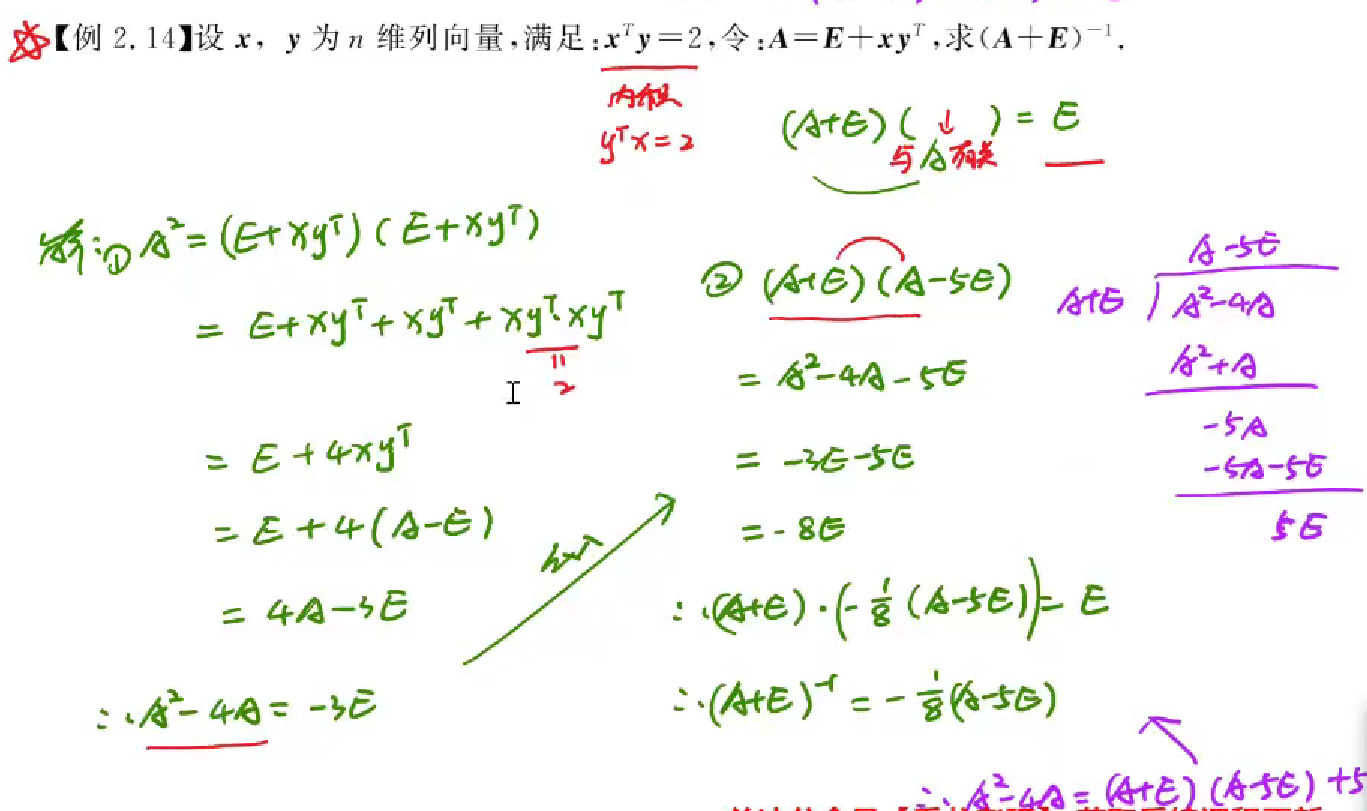 【例 2.14】设 x, y 为 n 维列向量,满足:xᵀy=2,令:A=E+xyᵀ,求(A+E)⁻¹.
内积
yᵀx=2
(A+E)( ↓ ) = E
与A有关
解:① A²=(E+xyᵀ)(E+xyᵀ)
= E+xyᵀ+xyᵀ+xyᵀ·xyᵀ
"
2
= E+4xyᵀ
= E+4(A-E)
= 4A-3E
∴ A²-4A=-3E
② (A+E)(A-5E)
= A²-4A-5E
= -3E-5E
=-8E
∴ (A+E)·(-1/8(A-5E))= E
∴ (A+E)⁻¹ = -1/8(A-5E)
A-5E
A+E ) A²-4A
A²+A
-5A
-5A-5E
5E
∴ A²-4A=(A+E)(A-5E)+5